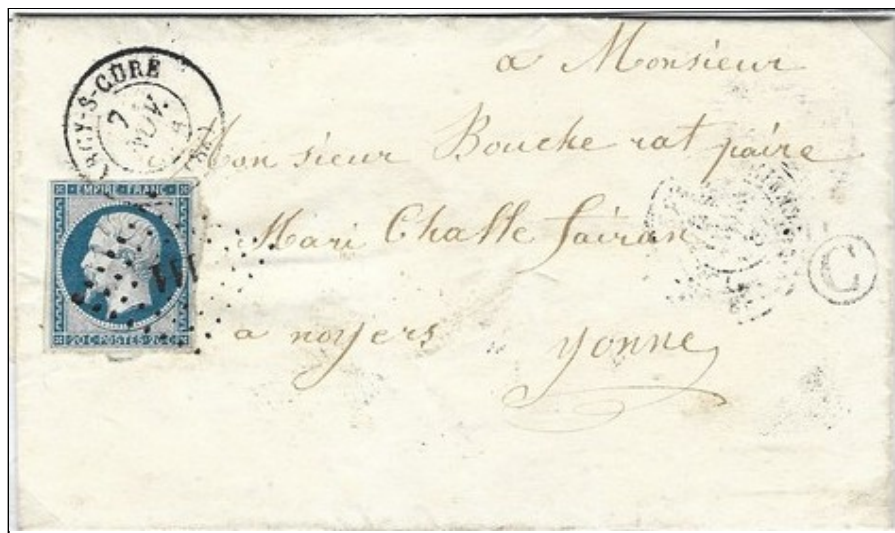 RCY-S-CURE
7
NOV.
EMPIRE·FRANC·
20 C·POSTES·20 C
111
a Monsieur
Monsieur Bouche rat paire
Mari Challe
a noyers Yonne
C